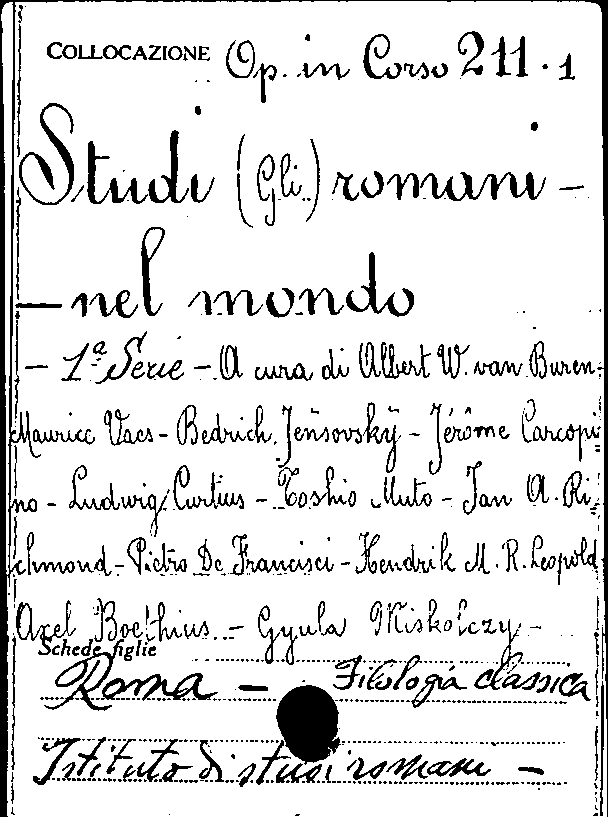 COLLOCAZIONE Op. in Corso 211.1
Studi (Gli) romani -
- nel mondo
- 1ª Serie - A cura di Albert W. van Buren -
Maurice Vaes - Bedrich Jeñsovskÿ - Jérôme Carcopi=
no - Ludwig Curtius - Toshio Muto - Jan A. Ri=
chmond - Pietro De Francisci - Hendrik M. R. Leopold -
Axel Boethius - Gyula Miskolczy -
Schede figlie
Roma - Filologia classica
Istituto di studi romani -